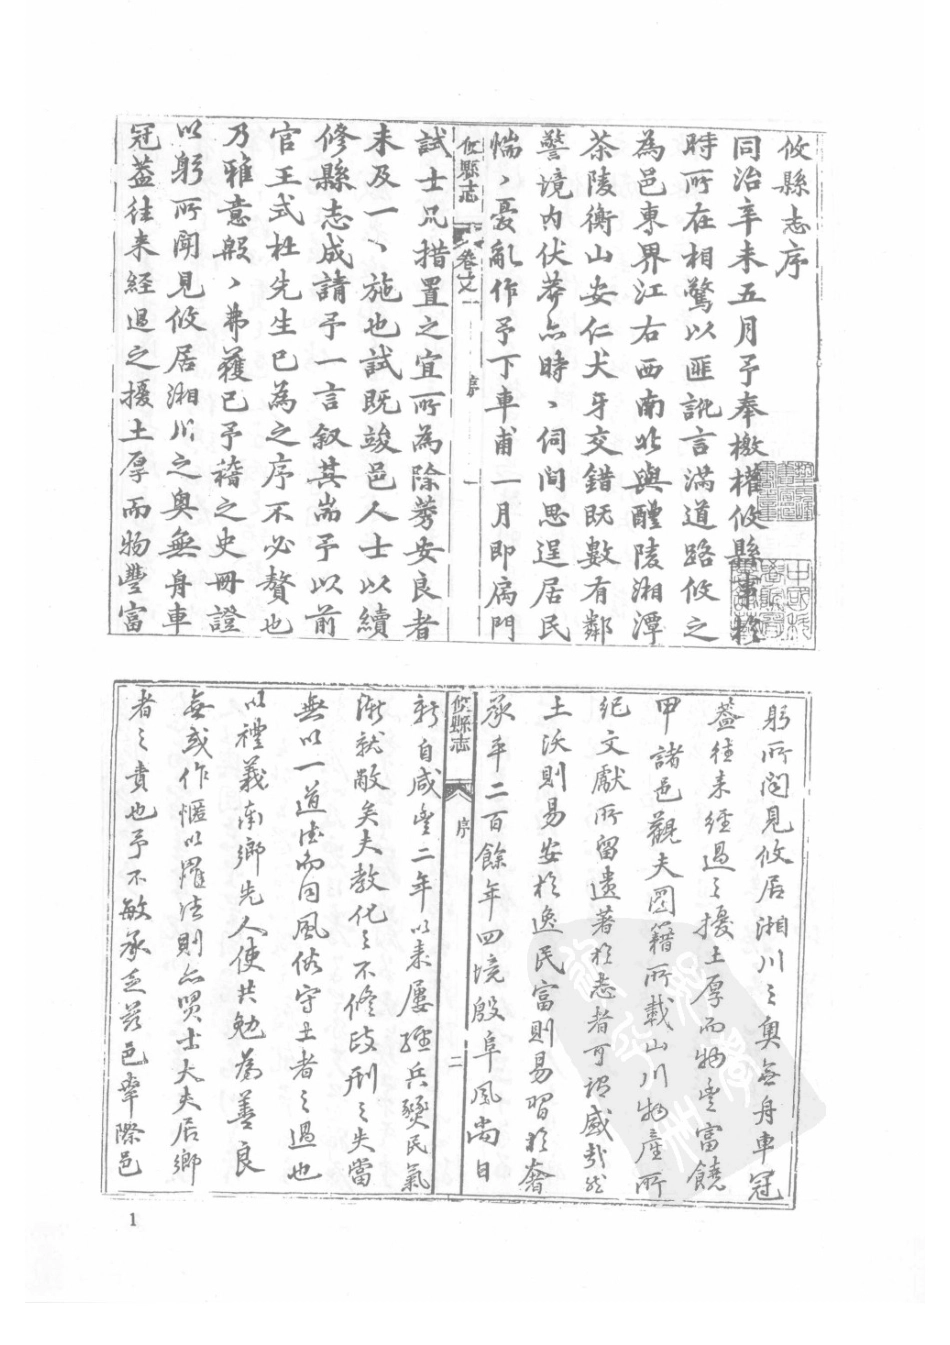 攸縣志序
同治辛未五月予奉檄權攸縣事於
時所在相驚以匪訛言滿道路攸之
為邑東界江右西南北與醴陵湘潭
茶陵衡山安仁犬牙交錯既數有鄰
警境內伏莽亦時、伺間思逞居民
惴、憂亂作予下車甫一月即扃門
攸縣志 卷文 序 一
試士凡措置之宜所為除莠安良者
未及一、施也試既竣邑人士以續
修縣志成請予一言叙其耑予以前
官王式杜先生已為之序不必贅也
乃雅意殷、弗獲已予稽之史冊證
以躬所聞見攸居湘川之奧無舟車
冠蓋往来經過之擾土厚而物豐富
躬所聞見攸居湘川之奧無舟車冠
蓋往来經過之擾土厚而物豐富饒
甲諸邑觀夫圖籍所載山川物產所
紀文獻所留遺著於志者可謂盛哉然
土沃則易安於逸民富則易習於奢
承平二百餘年四境殷阜風尚日
攸縣志 序 二
新自咸豐二年以来屢經兵燹民氣
漸就敝矣夫教化之不修政刑之失當
無以一道德而同風俗守土者之過也
以禮義南鄉先人使共勉為善良
無或作慝以罹法則亦賢士大夫居鄉
者之責也予不敏承乏茲邑幸際邑
1